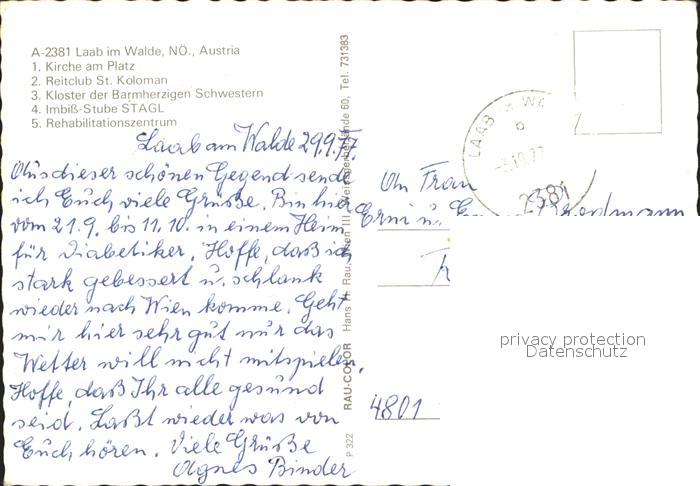 A-2381 Laab im Walde, NÖ., Austria
1. Kirche am Platz
2. Reitclub St. Koloman
3. Kloster der Barmherzigen Schwestern
4. Imbiß-Stube STAGL
5. Rehabilitationszentrum
Laab am Walde 29.9.77.
Aus dieser schönen Gegend sende
ich Euch viele Grüße. Bin hier
vom 21.9. bis 11.10. in einem Heim
für Diabetiker. Hoffe, daß ich
stark gebessert u. schlank
wieder nach Wien komme. Geht
mir hier sehr gut nur das
Wetter will nicht mitspielen.
Hoffe, daß Ihr alle gesund
seid. Laßt wieder was von
Euch hören. Viele Grüße
Agnes Binder
P 322 RAU-COLOR Hans H. Rau, Wien III 60, Tel. 731383
LAAB
b
77
2381
An Frau
Erni u.
4801
privacy protection
Datenschutz